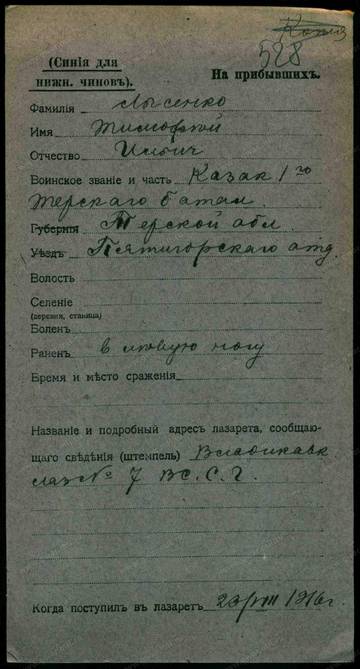 Копия
528
(Синія для
нижн. чиновъ).
На прибывшихъ.
Фамилія Лысенко
Имя Тимофей
Отчество Ильич
Воинское званіе и часть Казак 1го
Терскаго батал.
Губернія Терской обл
Уѣздъ Пятигорскаго отд.
Волость
Селеніе
(деревня, станица)
Боленъ
Раненъ в левую ногу
Время и мѣсто сраженія
Названіе и подробный адресъ лазарета, сообщаю-
щаго свѣдѣнія (штемпель) Владикавк
лаз № 7 В.С.Г.
Когда поступилъ въ лазаретъ 29/VIII 1916г.